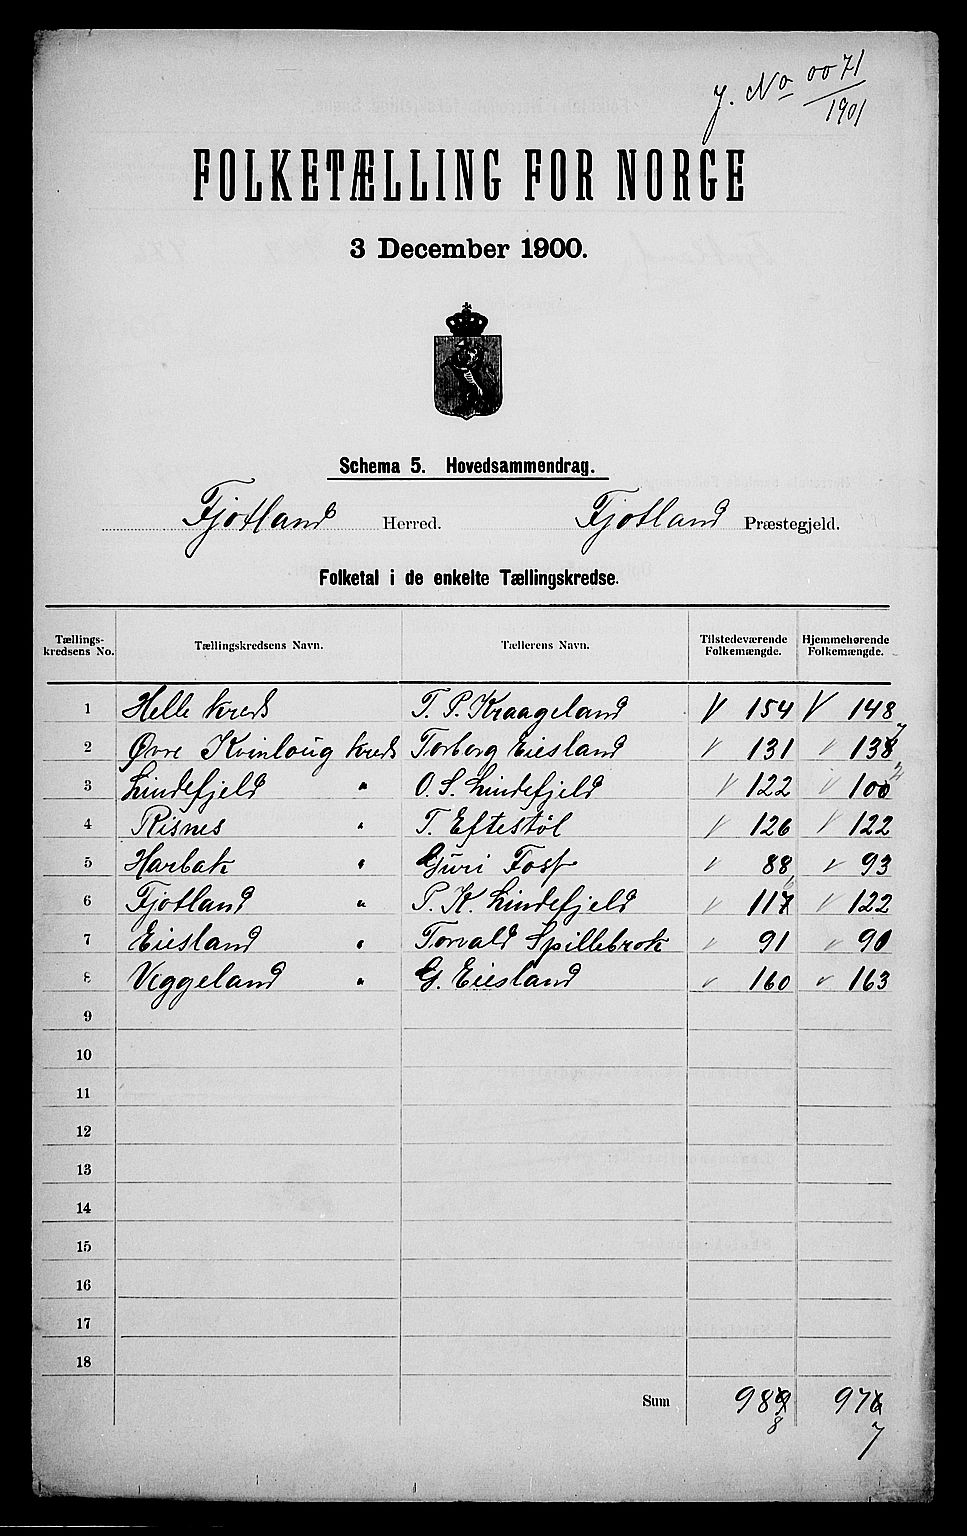 J. No 0071/1901
FOLKETÆLLING FOR NORGE
3 December 1900.
Schema 5. Hovedsammendrag.
Fjotland Herred. Fjotland Præstegjeld.
Folketal i de enkelte Tællingskredse.
Tællings-kredsens No. Tællingskredsens Navn. Tællerens Navn. Tilstedeværende Folkemængde. Hjemmehørende Folkemængde.
1 Helle kreds T. P. Kraageland V 154 V 148
2 Øvre Kvinloug kreds Torborg Eiesland V 131 V 138 7
3 Lindefjeld " O. S. Lindefjeld V 122 V 100 2
4 Risnes " T. Eftestöl V 126 V 122
5 Harbak " Guri Foss V 88 V 93
6 Fjotland " P. K. Lindefjeld V 117 6 V 122
7 Eiesland " Torvald Spillebrok V 91 V 90
8 Veggeland " G. Eiesland V 160 V 163
9
10
11
12
13
14
15
16
17
18
Sum 989 976
8 7